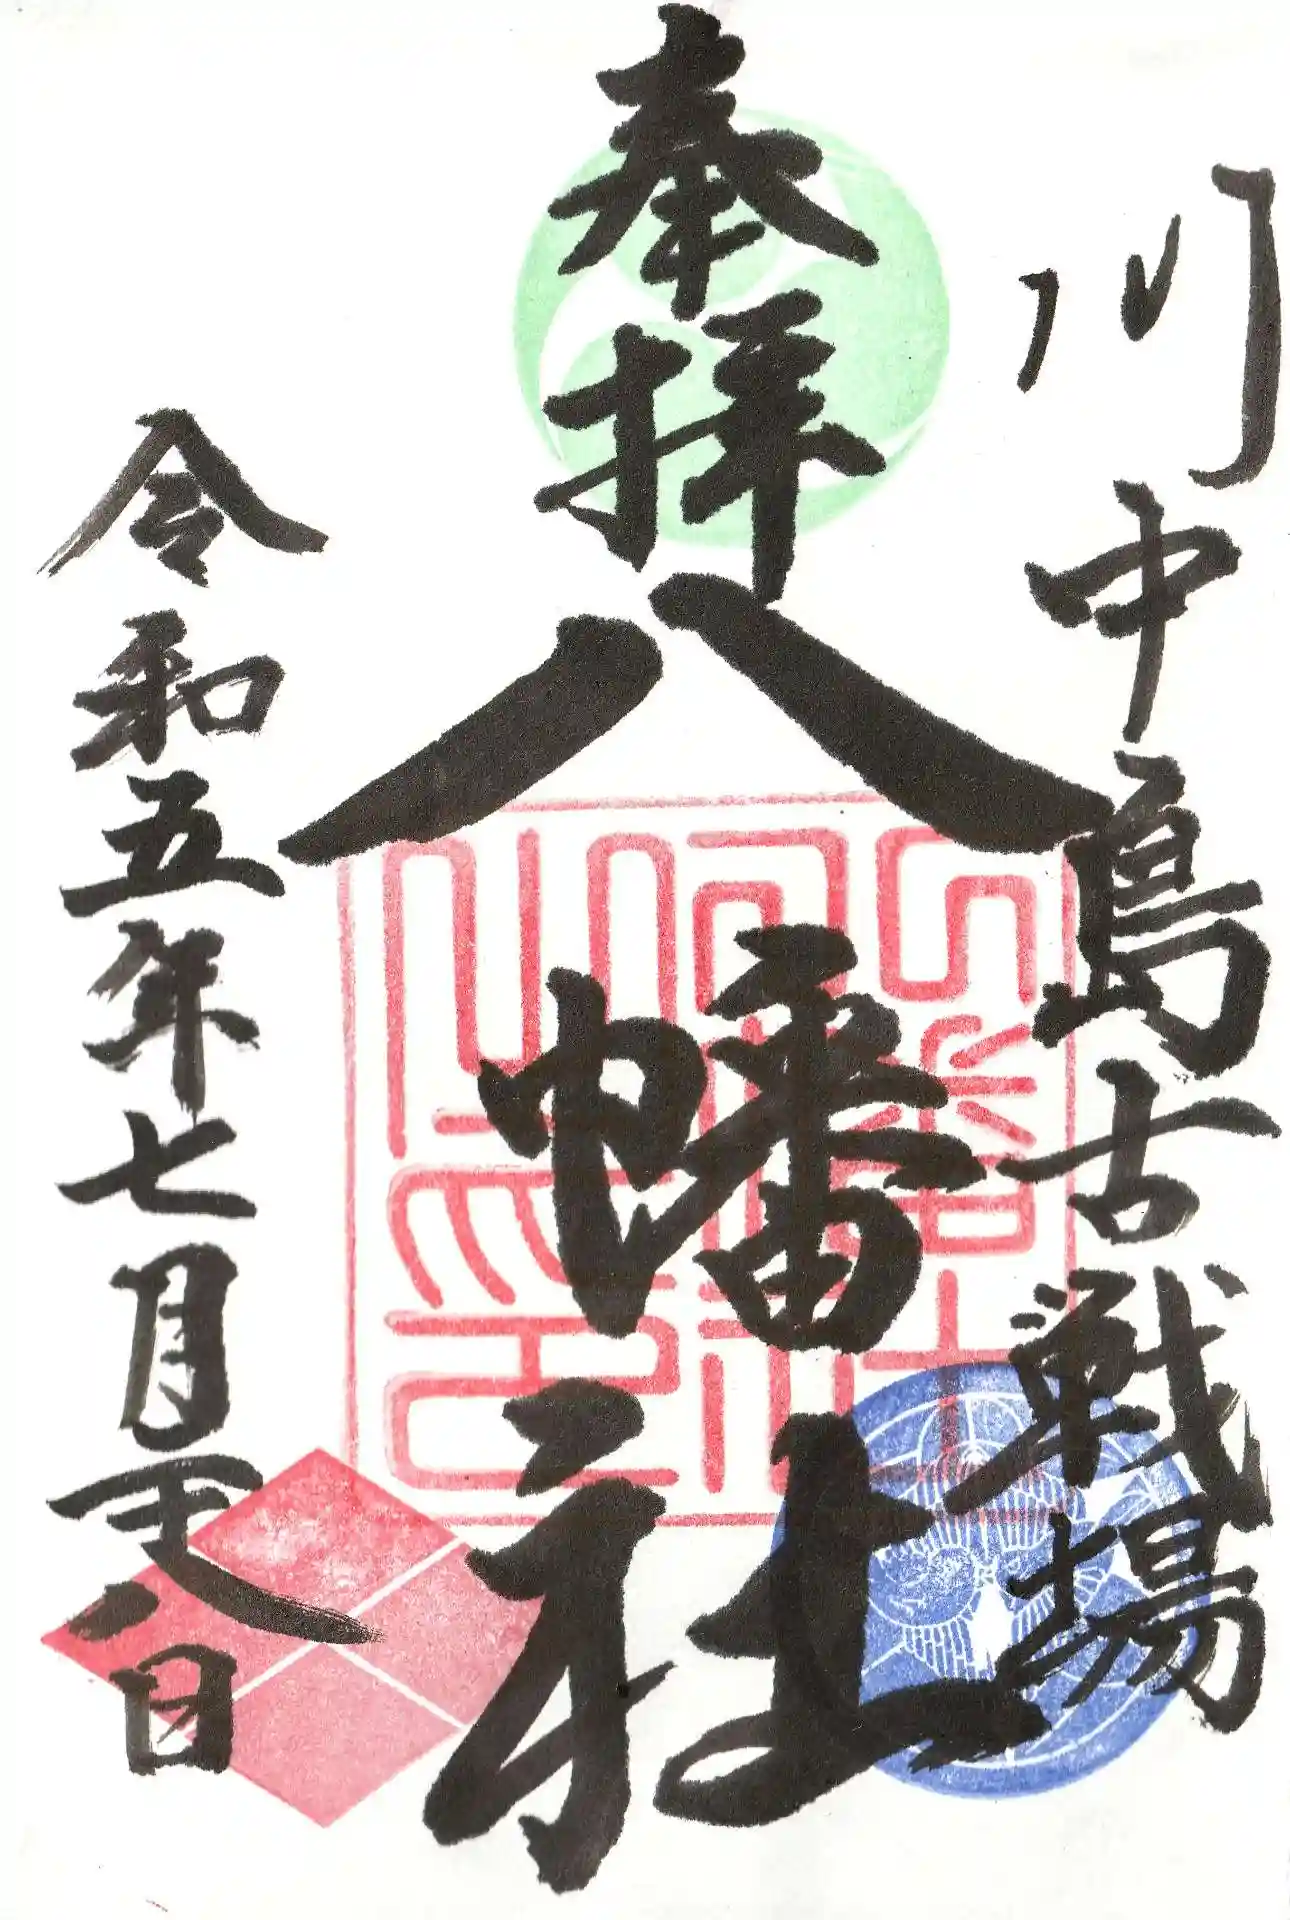 川中島古戦場
奉拝
八幡社
令和五年七月二十八日